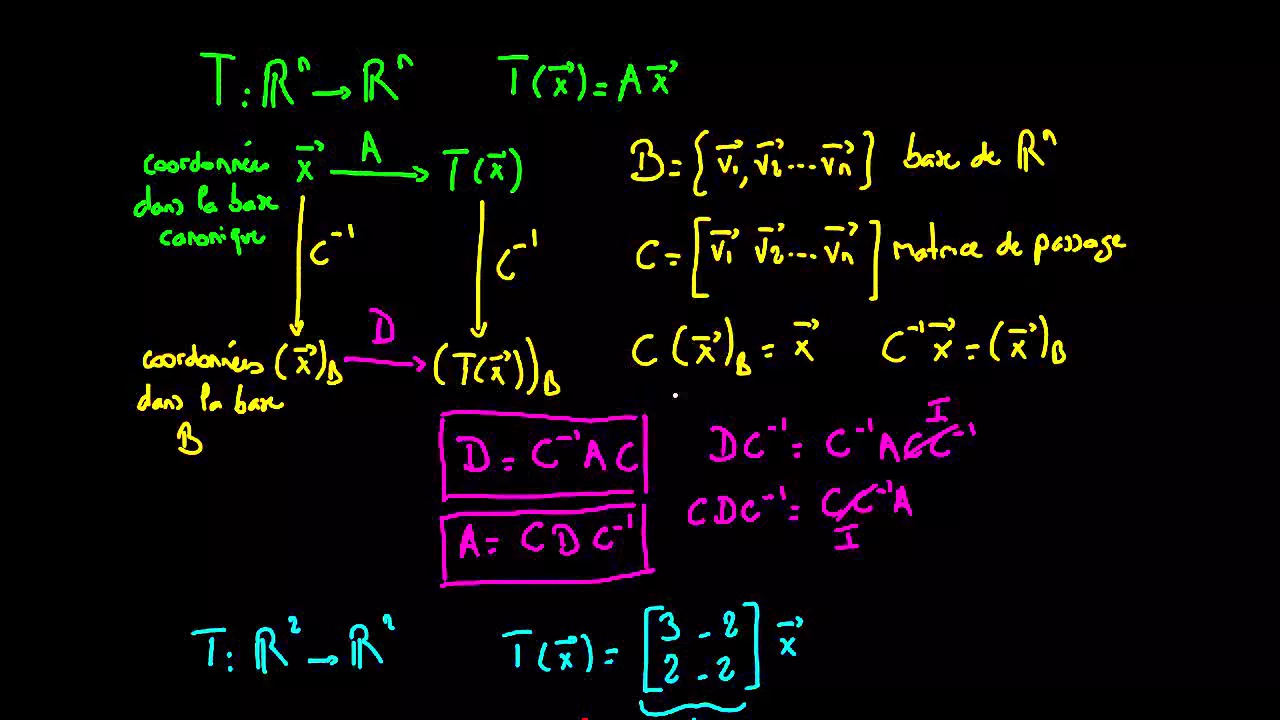 T : ℝⁿ → ℝⁿ    T(x⃗) = A x⃗
coordonnées
dans la base
canonique
x⃗ —A→ T(x⃗)
C⁻¹    C⁻¹
D
coordonnées
dans la base
B
(x⃗)_B → (T(x⃗))_B
B = {v⃗₁, v⃗₂ ... v⃗ₙ} base de ℝⁿ
C = [v⃗₁ v⃗₂ ... v⃗ₙ] matrice de passage
C (x⃗)_B = x⃗    C⁻¹ x⃗ = (x⃗)_B
D = C⁻¹ A C
A = C D C⁻¹
D C⁻¹ = C⁻¹ A C C⁻¹
I
C D C⁻¹ = C C⁻¹ A
I
T : ℝ² → ℝ²    T(x⃗) = [3 -2
2 -2] x⃗